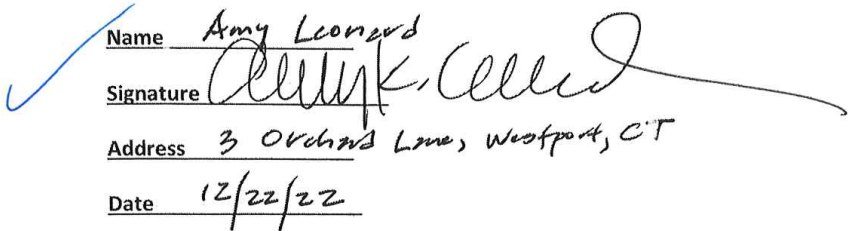 Name Amy Leonard
Signature Amy K. Leonard
Address 3 Orchard Lane, Westport, CT
Date 12/22/22